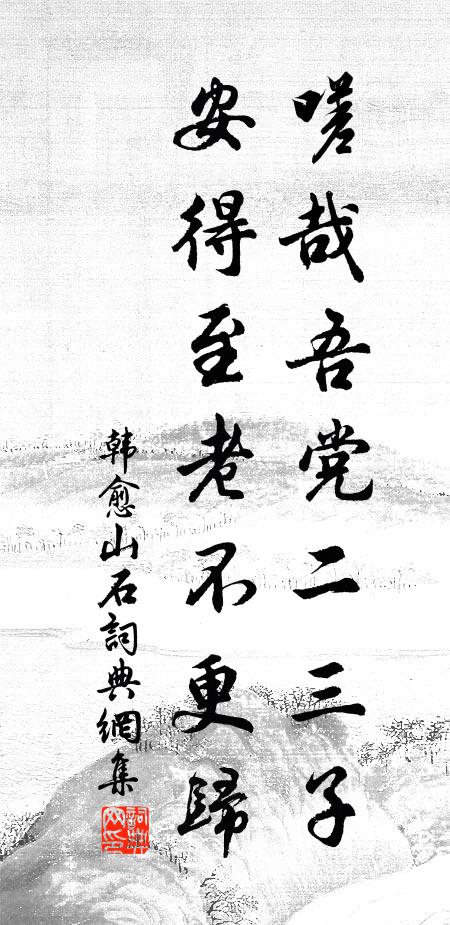 嗟哉吾党二三子
安得至老不更歸
韩愈山石詞典網集